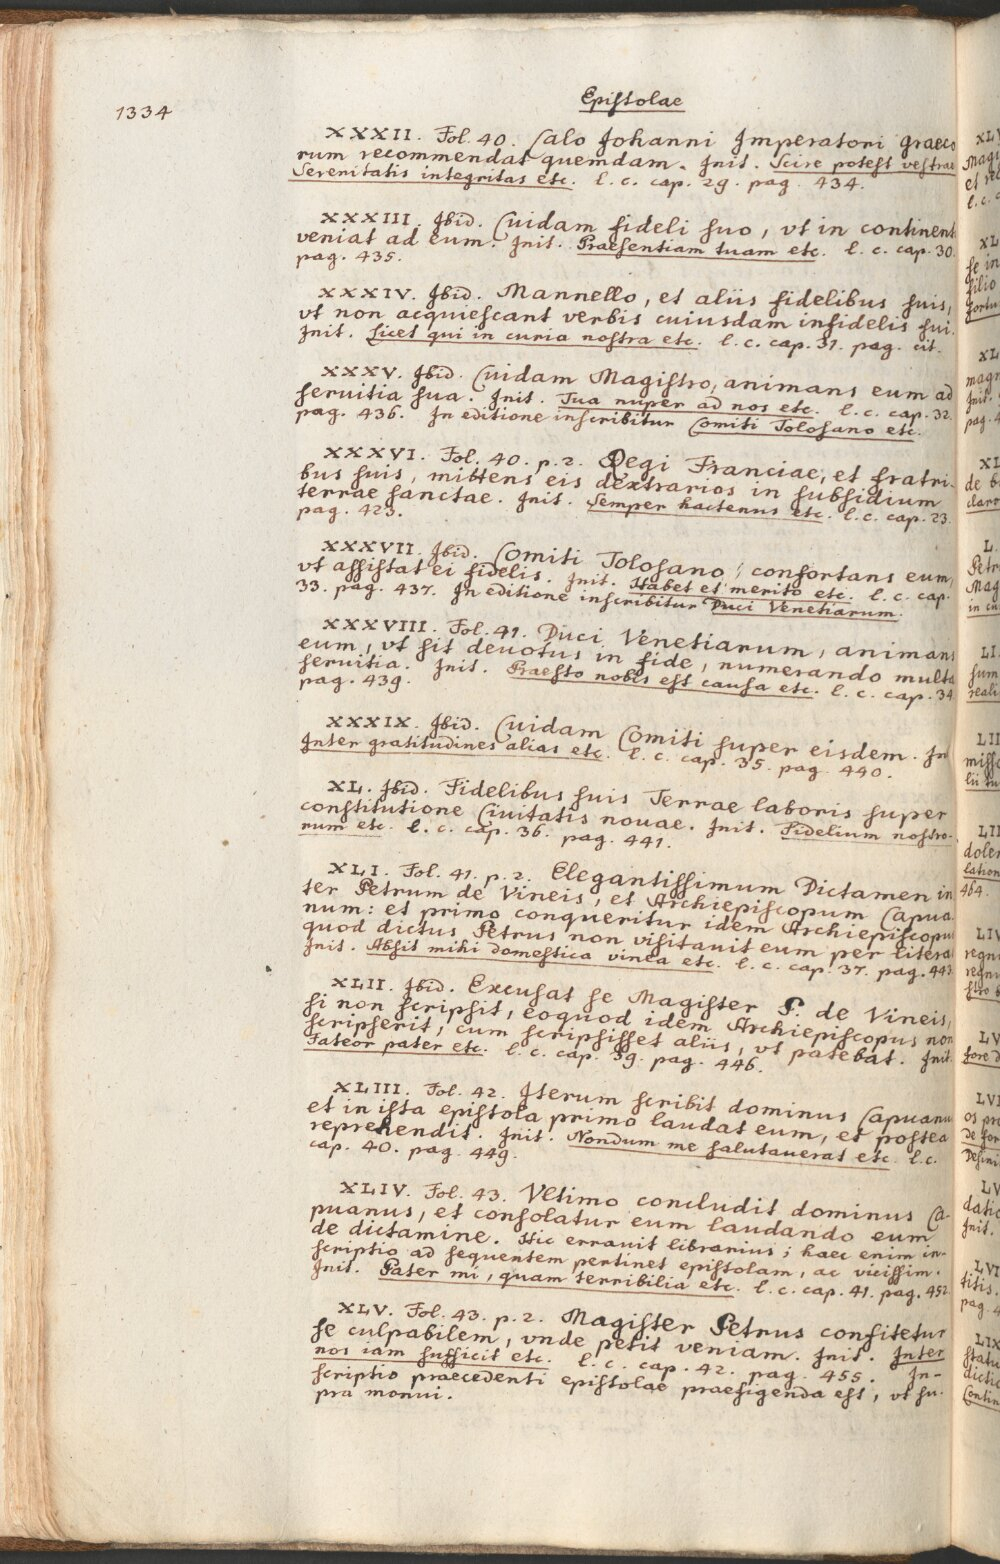 1334
Epistolae
XXXII. Fol. 40. Calo Johanni Imperatori Graeco
rum recommendat quemdam. Init. Scire potest vestrae
Serenitatis integritas etc. l. c. cap. 29. pag. 434.
XXXIII. Ibid. Cuidam fideli suo, vt in continenti
veniat ad eum. Init. Praesentiam tuam etc. l. c. cap. 30.
pag. 435.
XXXIV. Ibid. Mannello, et aliis fidelibus suis,
vt non acquiescant verbis cuiusdam infidelis sui.
Init. Licet qui in curia nostra etc. l. c. cap. 31. pag. cit.
XXXV. Ibid. Cuidam Magistro, animans eum ad
seruitia sua. Init. Tua nuper ad nos etc. l. c. cap. 32.
pag. 436. In editione inscribitur Comiti Tolosano etc.
XXXVI. Fol. 40. p. 2. Regi Franciae, et fratri-
bus suis, mittens eis dextrarios in subsidium
terrae sanctae. Init. Semper hactenus etc. l. c. cap. 23.
pag. 423.
XXXVII. Ibid. Comiti Tolosano, confortans eum,
vt assistat ei fidelis. Init. Habet et merito etc. l. c. cap.
33. pag. 437. In editione inscribitur Duci Venetiarum.
XXXVIII. Fol. 41. Duci Venetiarum, animans
eum, vt sit deuotus in fide, numerando multa
seruitia. Init. Praesto nobis est causa etc. l. c. cap. 34.
pag. 439.
XXXIX. Ibid. Cuidam Comiti super eisdem. In
Inter gratitudines alias etc. l. c. cap. 35. pag. 440.
XL. Ibid. Fidelibus suis Terrae laboris super
constitutione Ciuitatis nouae. Init. Fidelium nostro-
rum etc. l. c. cap. 36. pag. 441.
XLI. Fol. 41. p. 2. Elegantissimum Dictamen in
ter Petrum de Vineis, et Archiepiscopum Capua
num: et primo conqueritur idem Archiepiscopu
quod dictus Petrus non visitauit eum per litera
Init. Absit mihi domestica vinea etc. l. c. cap. 37. pag. 443.
XLII. Ibid. Excusat se Magister P. de Vineis,
si non scripsit, eoquod idem Archiepiscopus non
scripserit, cum scripsisset aliis, vt patebat. Init.
Fateor pater etc. l. c. cap. 39. pag. 446.
XLIII. Fol. 42. Iterum scribit dominus Capuanu
et in ista epistola primo laudat eum, et postea
reprehendit. Init. Nondum me salutauerat etc. l. c.
cap. 40. pag. 449.
XLIV. Fol. 43. Vltimo concludit dominus Ca-
puanus, et consolatur eum laudando eum
de dictamine. Hic errauit librarius; haec enim in-
scriptio ad sequentem pertinet epistolam, ac vicissim.
Init. Pater mi, quam terribilia etc. l. c. cap. 41. pag. 452.
XLV. Fol. 43. p. 2. Magister Petrus confitetur
se culpabilem, vnde petit veniam. Init. Inter
nos iam sufficit etc. l. c. cap. 42. pag. 455. In-
scriptio praecedenti epistolae praefigenda est, vt su-
pra monui.